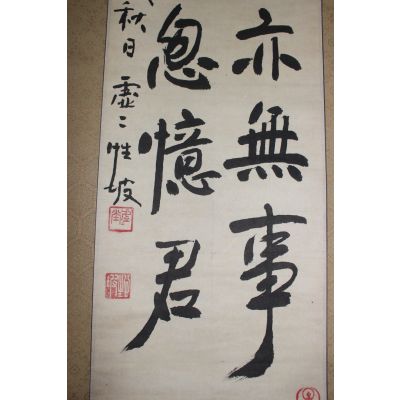 亦無事
忽憶君
秋日 虛〻 性坡